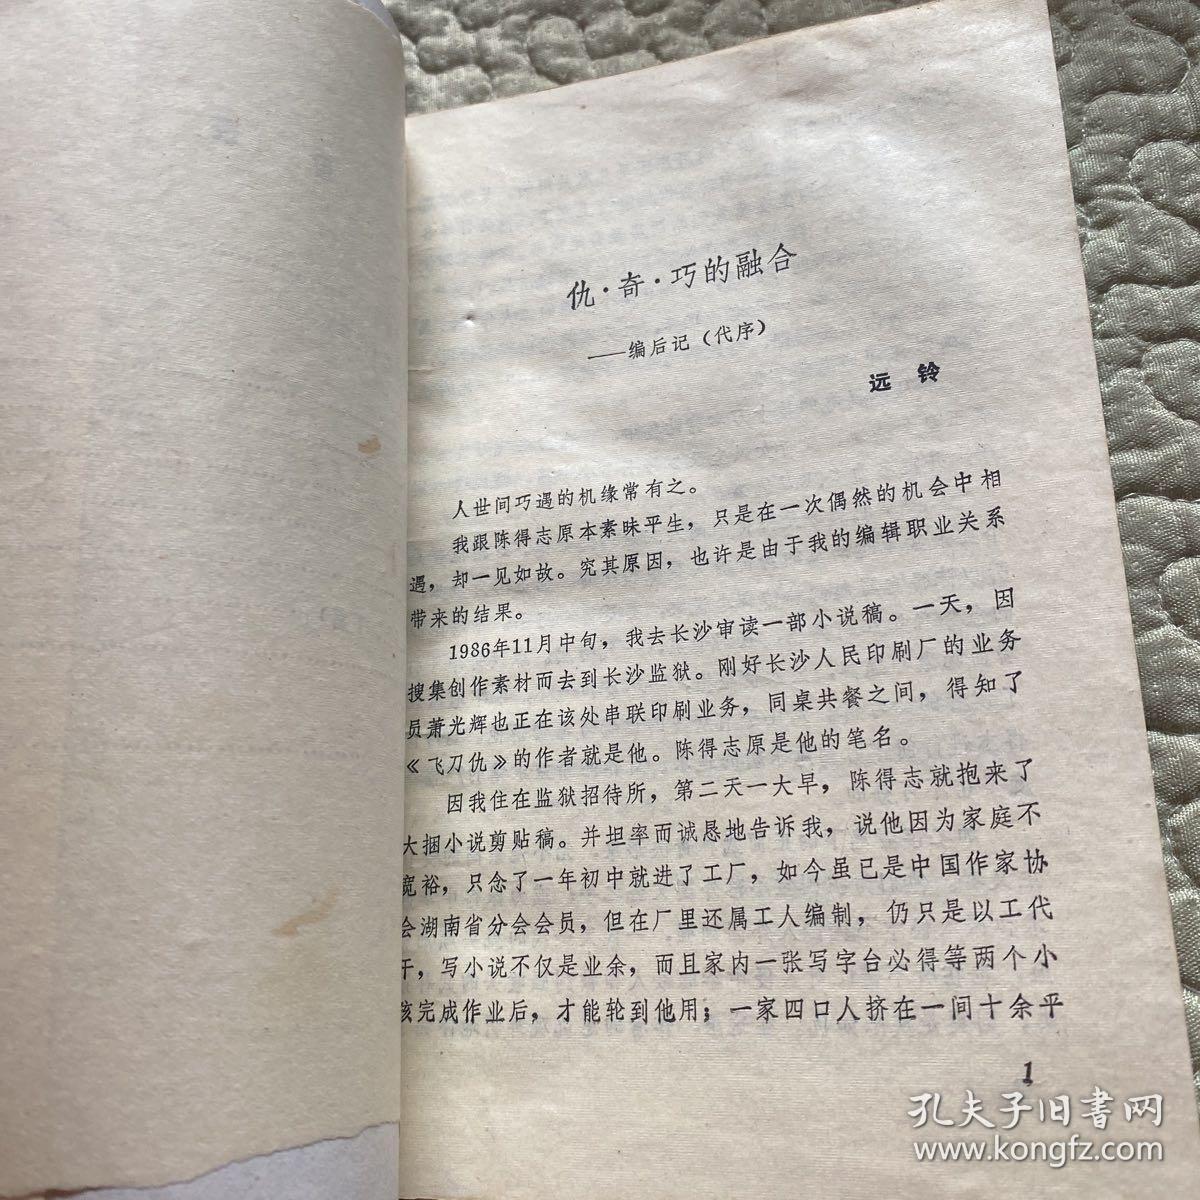 仇·奇·巧的融合
——编后记（代序）
远 铃
人世间巧遇的机缘常有之。
我跟陈得志原本素昧平生，只是在一次偶然的机会中相
遇，却一见如故。究其原因，也许是由于我的编辑职业关系
带来的结果。
1986年11月中旬，我去长沙审读一部小说稿。一天，因
搜集创作素材而去到长沙监狱。刚好长沙人民印刷厂的业务
员萧光辉也正在该处串联印刷业务，同桌共餐之间，得知了
《飞刀仇》的作者就是他。陈得志原是他的笔名。
因我住在监狱招待所，第二天一大早，陈得志就抱来了
大捆小说剪贴稿。并坦率而诚恳地告诉我，说他因为家庭不
宽裕，只念了一年初中就进了工厂，如今虽已是中国作家协
会湖南省分会会员，但在厂里还属工人编制，仍只是以工代
干，写小说不仅是业余，而且家内一张写字台必得等两个小
孩完成作业后，才能轮到他用；一家四口人挤在一间十余平
1
孔夫子旧书网
www.kongfz.com